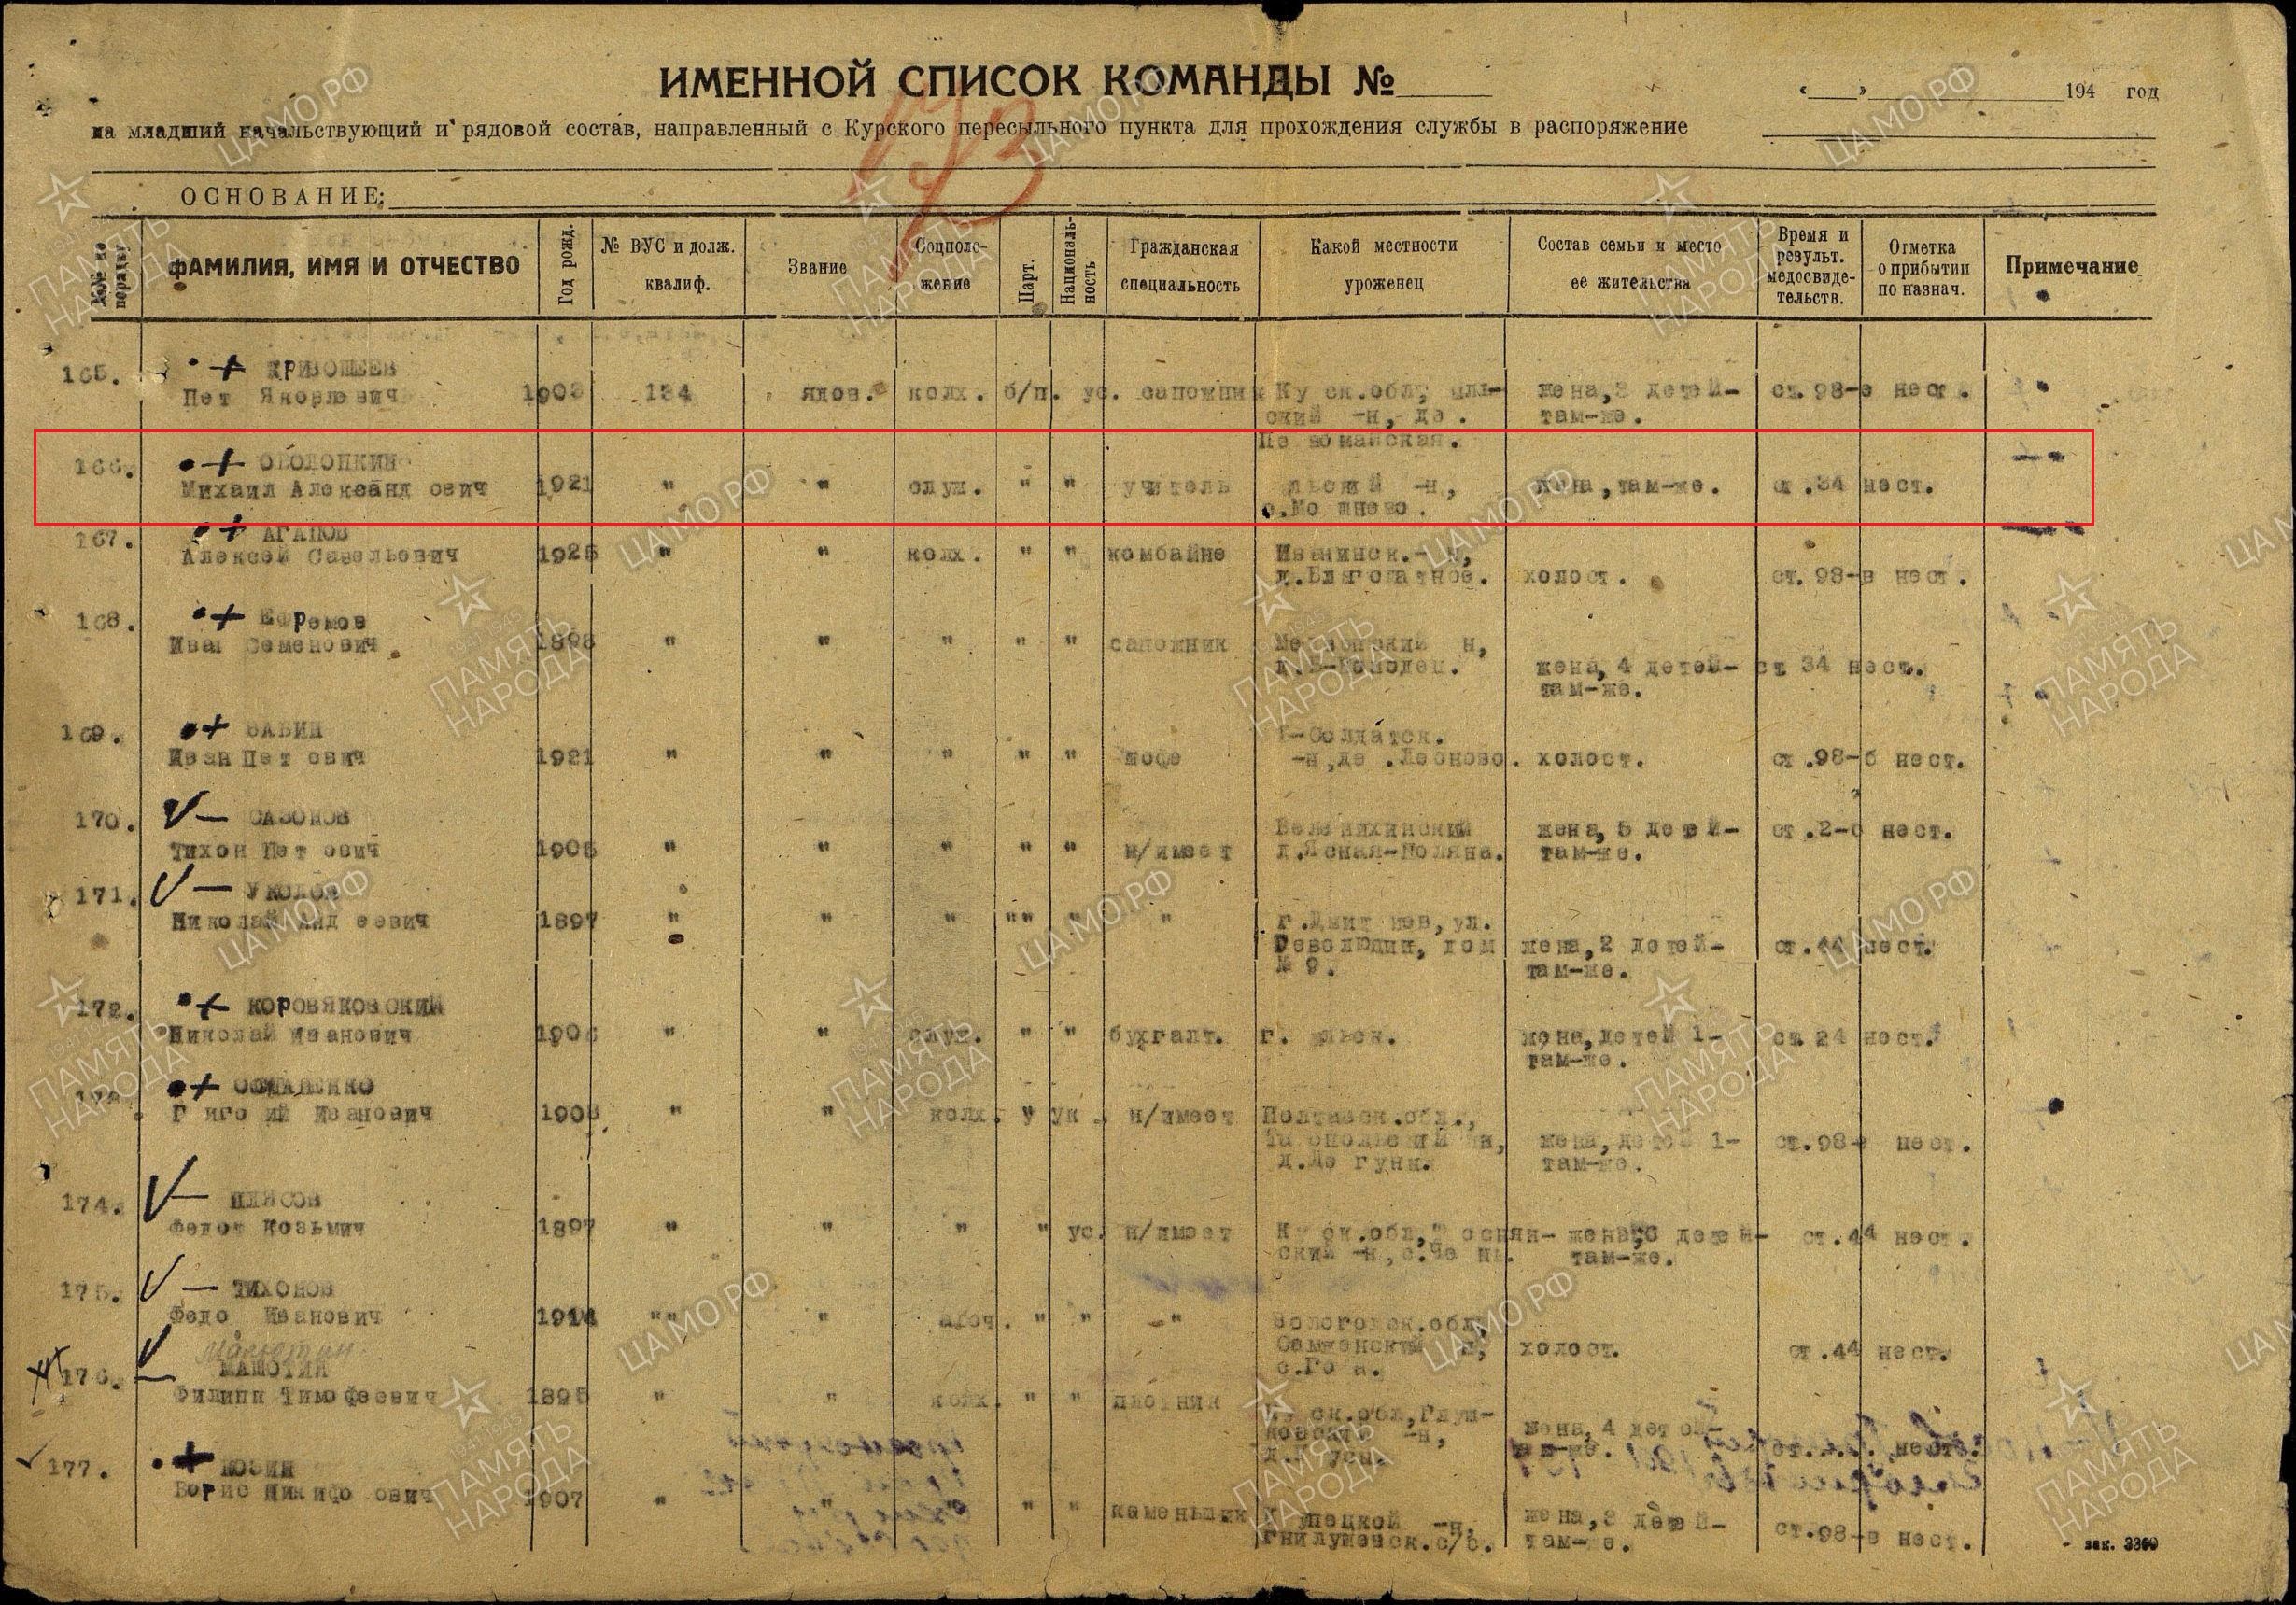 ИМЕННОЙ СПИСОК КОМАНДЫ №
« » 194 год
на младший начальствующий и рядовой состав, направленный с Курского пересыльного пункта для прохождения службы в распоряжение
ОСНОВАНИЕ:
№№ по порядку ФАМИЛИЯ, ИМЯ И ОТЧЕСТВО Год рожд. № ВУС и долж. квалиф. Звание Соцположение Парт. Национальность Гражданская специальность Какой местности уроженец Состав семьи и место ее жительства Время и результ. медосвидетельств. Отметка о прибытии по назнач. Примечание
165. + КРИВОШЕЕВ
Пет Яковлевич 1903 134 ядов. колх. б/п. ус. сапожник Ку ск.обл, жена,3 детей- ст.98- нест.
ский -н, де . там-же.
Пе вомайская.
166. + ОБОЛОНКИН
Михаил Александ ович 1921 " " служ. " " учитель льский -н, жена,там-же. ст.34 нест.
с.Мо шнево.
167. + АГАПОВ
Алексей Савельович 1925 " " колх. " " комбайне Иванинск.- н,
д.Благодатное. холост. ст.98-в нест.
168. + Ефремов
Иван Семенович 1898 " " " " " сапожник н,
жена,4 детей- ст 34 нест.
там-же.
169. + БАБИН
Иван Пет ович 1921 " " " " " шофе Б-Солдатск.
-н,де .Леоново. холост. ст.98-б нест.
170. V — САЗОНОВ
Тихон Пет ович 1905 " " " " " н/имеет Беленихинский жена,5 детей- ст.2-б нест.
д.Ясная-Поляна. там-же.
171. V — УКОЛОВ
Николай Анд еевич 1897 " " " "" " " г.Дмит иев,ул.
Революции, дом жена,2 детей- ст.44 нест.
№ 9. там-же.
172. + КОРОВЯКОВСКИЙ
Николай Иванович 1906 " " служ. " " бухгалт. г. льск. жена,детей 1- ст.24 нест.
там-же.
+
Г иго ий Иванович 1908 " " колх. " ук . н/имеет Полтавск.обл.,
н, жена,детей 1- ст.98- нест.
там-же.
174. V — ИЛЯСОВ
Федот Козьмич 1897 " " " " ус. н/имеет Ку ск.обл, детей- ст.44 нест.
ский -н, там-же.
175. V — ТИХОНОВ
Федо Иванович 1914 "" " абоч. " " -" Вологодск.обл,
н, холост. ст.44 нест.
с.Го а.
Малютин.
176. V — МАЛЮТИН
Филипп Тимофеевич 1895 " " колх. " " плотник
Ку ск.обл,Глуш-
ковский -н, жена,4 детей-
177. + КОЗИН
Борис Никифо ович 1907 " " " " " каменьщик -н, жена,3 детей- ст.98-в нест.
с/с. там-же.
зак. 3360
ПАМЯТЬ НАРОДА
ЦАМО РФ